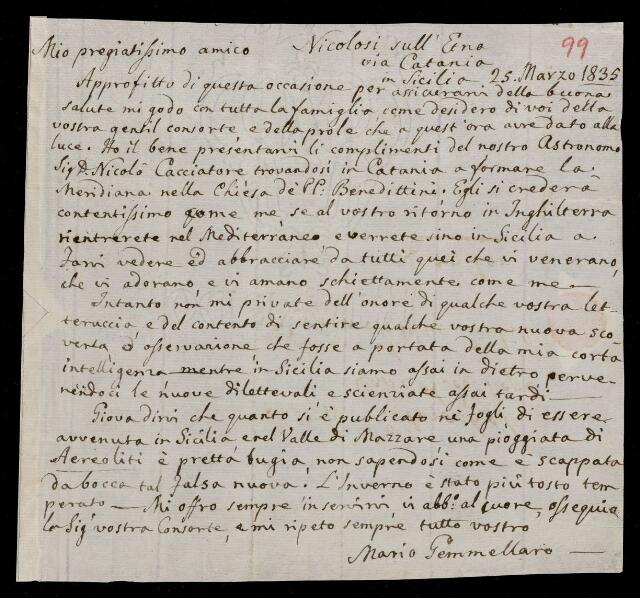 99
Mio pregiatissimo amico Nicolosi sull'Etna
via Catania
in Sicilia 25. Marzo 1835
Approfitto di questa occasione per assicurarvi della buona
salute mi godo con tutta la famiglia, come desidero di voi della
vostra gentil consorte, e della prole che a quest'ora avre dato alla
luce. Ho il bene presentarvi li complimenti del nostro Astronomo
Sig. D. Nicolò Cacciatore trovandosi in Catania a formare la
Meridiana nella Chiesa de' PP. Benedittini. Egli si crederà
contentissimo come me se al vostro ritorno in Inghilterra
rientrerete nel Mediterraneo e verrete sino in Sicilia a
farvi vedere ed abbracciare da tutti quei che vi venerano,
che vi adorano e vi amano schiettamente come me —
Intanto non mi private dell'onore di qualche vostra let-
teruccia, e del contento di sentire qualche vostra nuova sco
verta, o osservazione che fosse a portata della mia corta
intelligenza mentre in Sicilia siamo assai in dietro perve-
nendoci le nuove dilettevali, e scienziate assai tardi —
Giova dirvi che quanto si è publicato ne' fogli di essere
avvenuta in Sicilia e nel Valle di Mazzare una pioggiata di
Aereoliti è pretta bugia, non sapendosi come è scappata
da bocca tal falsa nuova. L'Inverno è stato più tosto tem
perato — Mi offro sempre in servirvi, vi abb.o al cuore, ossequio
la Sig.a vostra Consorte, e mi ripeto sempre tutto vostro
Mario Gemmellaro —